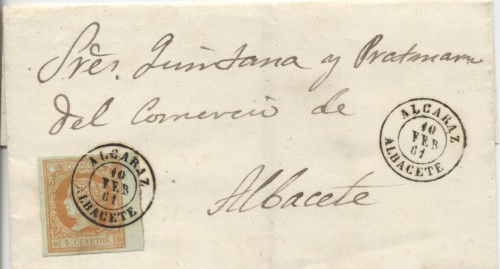 Sres. Quintana y Pratmans
del Comercio de
Albacete
ALCARAZ
10
FEB
61
ALBACETE
ALCARAZ
10
FEB
61
ALBACETE
CUARTOS